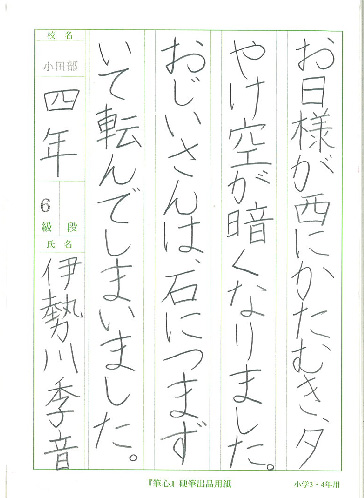 お日様が西にかたむき、夕
やけ空が暗くなりました。
おじいさんは、石につまず
いて転んでしまいました。
校名
小田部
四年
6
級 段
氏名
伊勢川季音
『筆心』硬筆出品用紙
小学3・4年用